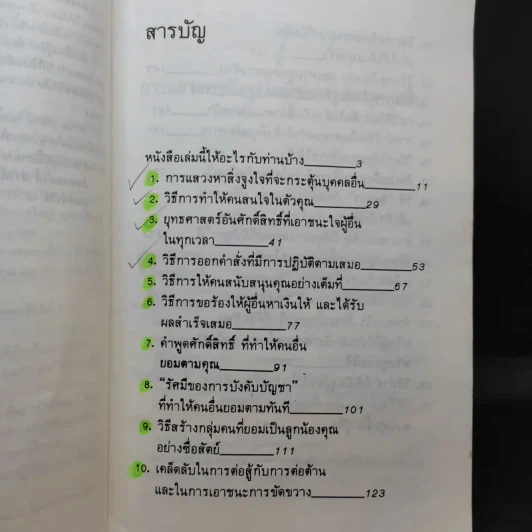 สารบัญ
หนังสือเล่มนี้ให้อะไรกับท่านบ้าง________3
1. การแสวงหาสิ่งจูงใจที่จะกระตุ้นบุคคลอื่น________11
2. วิธีการทำให้คนสนใจในตัวคุณ________29
3. ยุทธศาสตร์อันศักดิ์สิทธิ์ที่เอาชนะใจผู้อื่น
ในทุกเวลา________41
4. วิธีการออกคำสั่งที่มีการปฏิบัติตามเสมอ________53
5. วิธีการให้คนสนับสนุนคุณอย่างเต็มที่________67
6. วิธีการขอร้องให้ผู้อื่นหาเงินให้ และได้รับ
ผลสำเร็จเสมอ________77
7. คำพูดศักดิ์สิทธิ์ ที่ทำให้คนอื่น
ยอมตามคุณ________91
8. "รัศมีของการบังคับบัญชา"
ที่ทำให้คนอื่นยอมตามทันที________101
9. วิธีสร้างกลุ่มคนที่ยอมเป็นลูกน้องคุณ
อย่างซื่อสัตย์________111
10. เคล็ดลับในการต่อสู้กับการต่อต้าน
และในการเอาชนะการขัดขวาง________123